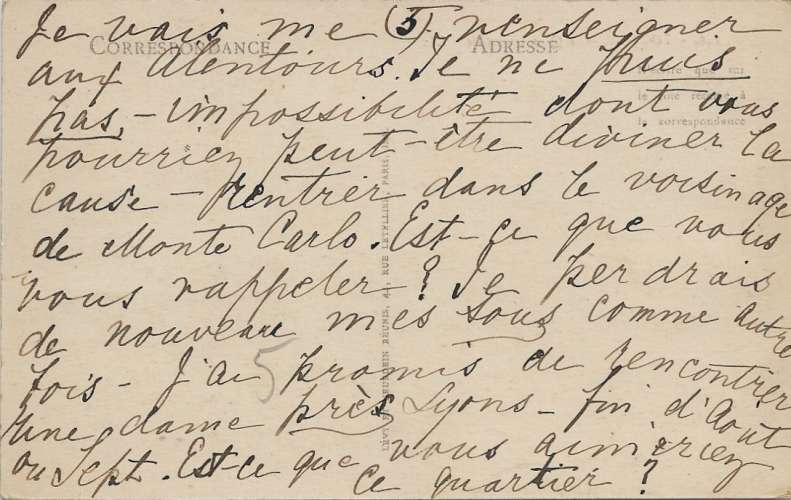 Je vais me (5) renseigner
CORRESPONDANCE
ADRESSE
aux Alentours. Je ne puis
pas, - impossibilité dont vous
la correspondance
pourriez peut-être diviner la
cause - rentrer dans le voisinage
de Monte Carlo. Est-ce que vous
vous rappeler ? Je perdrais
de nouveau mes sous comme autre
fois - J'ai promis de rencontrer
5
une dame près Lyons - fin d'Août
ou Sept. Est-ce que vous aimeriez
ce quartier ?
RUE LETELLIER, PARIS